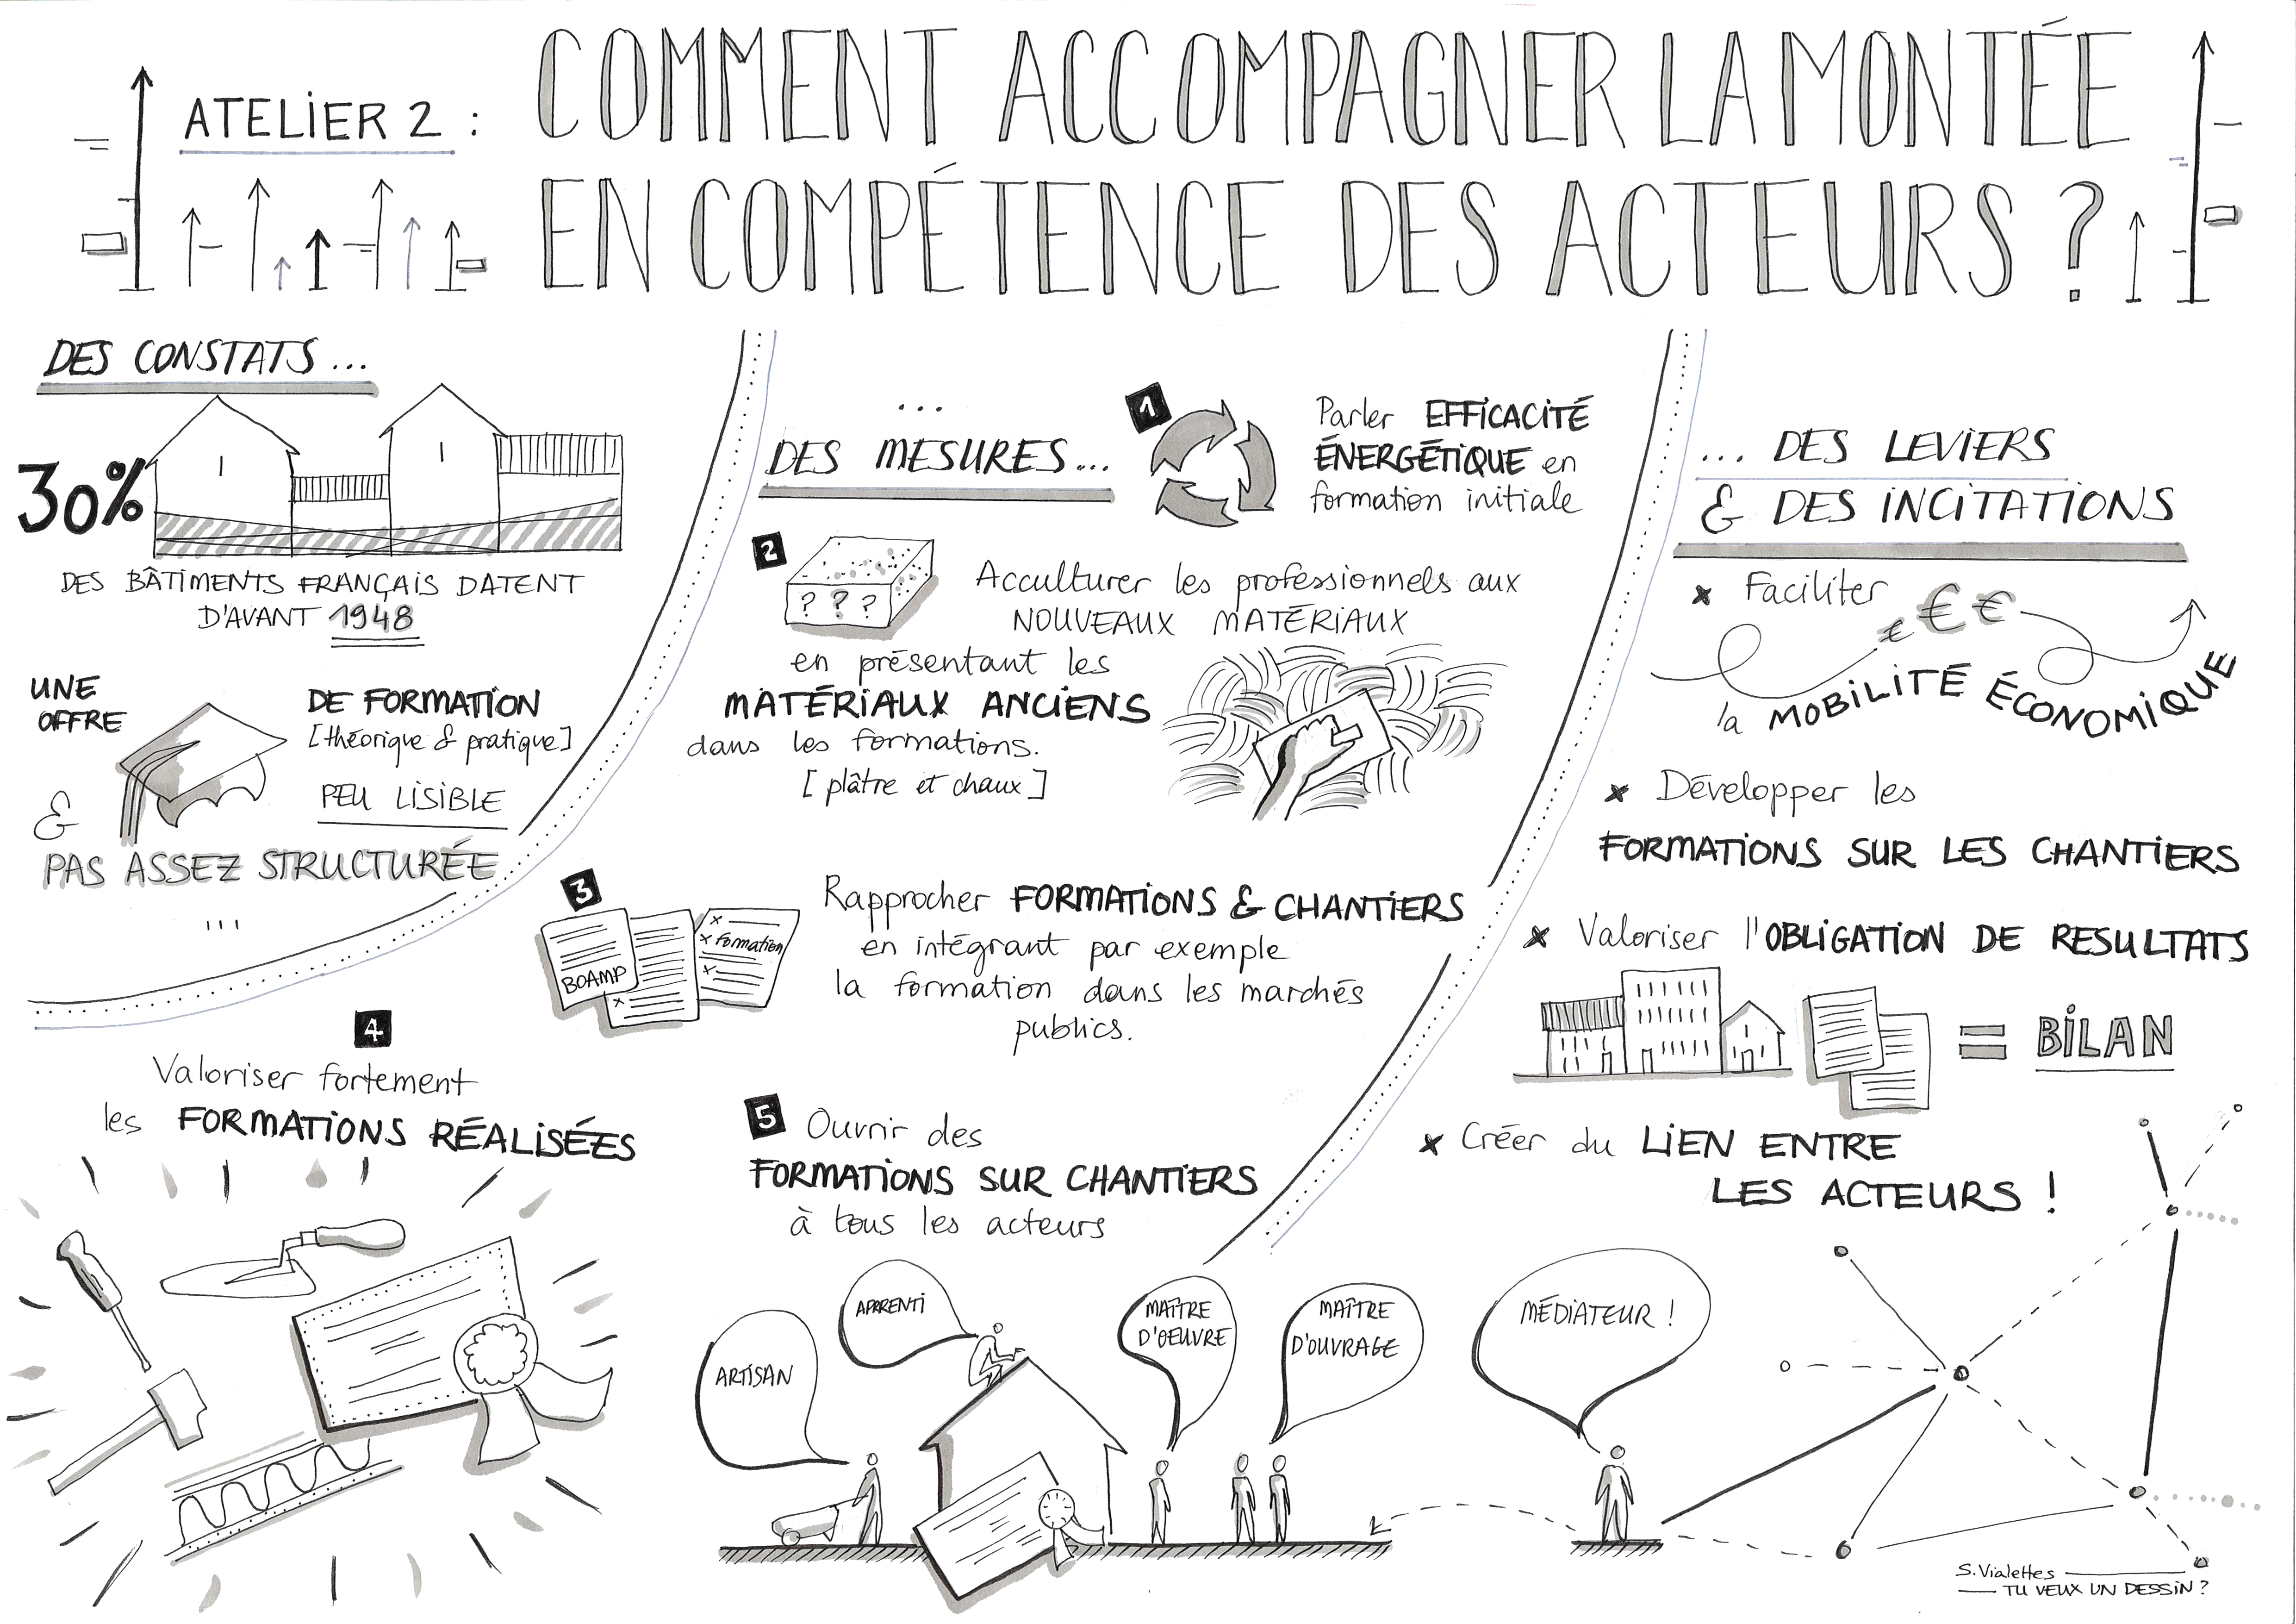 ATELIER 2 :
COMMENT ACCOMPAGNER LA MONTÉE
EN COMPÉTENCE DES ACTEURS ?
DES CONSTATS ...
30%
DES BÂTIMENTS FRANÇAIS DATENT
D'AVANT 1948
UNE
OFFRE
DE FORMATION
[théorique & pratique]
PEU LISIBLE
&
PAS ASSEZ STRUCTURÉE
...
...
DES MESURES...
1
Parler EFFICACITÉ
ÉNERGÉTIQUE en
formation initiale
2
? ? ?
Acculturer les professionnels aux
NOUVEAUX MATÉRIAUX
en présentant les
MATÉRIAUX ANCIENS
dans les formations.
[ plâtre et chaux ]
3
BOAMP
Formation
Rapprocher FORMATIONS & CHANTIERS
en intégrant par exemple
la formation dans les marchés
publics.
4
Valoriser fortement
les FORMATIONS RÉALISÉES
5
Ouvrir des
FORMATIONS SUR CHANTIERS
à tous les acteurs
ARTISAN
APPRENTI
MAÎTRE
D'OEUVRE
MAÎTRE
D'OUVRAGE
MÉDIATEUR !
... DES LEVIERS
& DES INCITATIONS
x Faciliter
€ € €
la MOBILITÉ ÉCONOMIQUE
x Développer les
FORMATIONS SUR LES CHANTIERS
x Valoriser l'OBLIGATION DE RESULTATS
= BILAN
x Créer du LIEN ENTRE
LES ACTEURS !
S.Vialettes
TU VEUX UN DESSIN ?